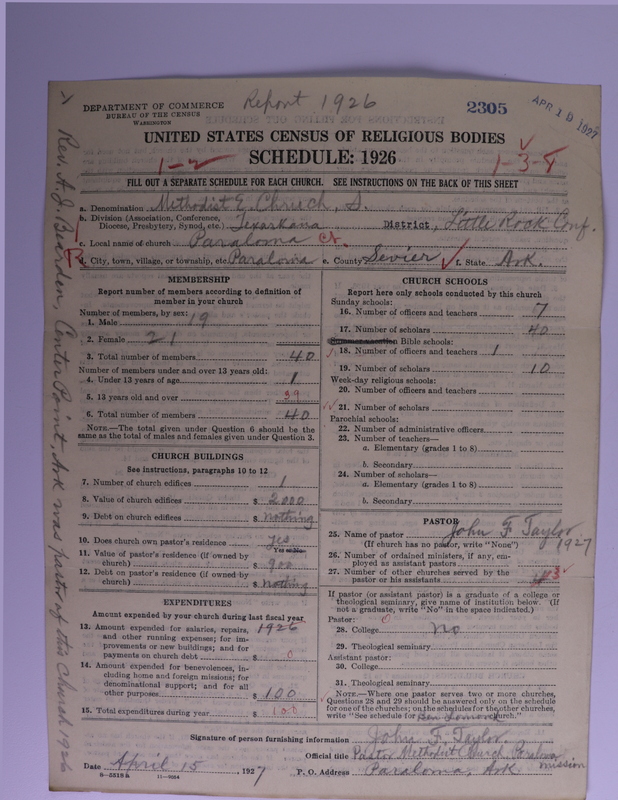 Report 1926
DEPARTMENT OF COMMERCE
BUREAU OF THE CENSUS
WASHINGTON
2305
APR 19 1927
UNITED STATES CENSUS OF RELIGIOUS BODIES
SCHEDULE: 1926
1-2
1-3-8
FILL OUT A SEPARATE SCHEDULE FOR EACH CHURCH. SEE INSTRUCTIONS ON THE BACK OF THIS SHEET
a. Denomination Methodist E. Chruch, S.
b. Division (Association, Conference,
Diocese, Presbytery, Synod, etc.) Texarkana District, Little Rock Conf.
c. Local name of church Paraloma Ct.
d. City, town, village, or township, etc. Paraloma e. County Sevier f. State Ark.
MEMBERSHIP
Report number of members according to definition of
member in your church
Number of members, by sex:
1. Male 19
2. Female 21
3. Total number of members 40
Number of members under and over 13 years old:
4. Under 13 years of age 1
5. 13 years old and over 39
6. Total number of members 40
NOTE.—The total given under Question 6 should be the
same as the total of males and females given under Question 3.
CHURCH BUILDINGS
See instructions, paragraphs 10 to 12
7. Number of church edifices 1
8. Value of church edifices $ 2000
9. Debt on church edifices $ nothing
10. Does church own pastor's residence? yes
Yes or No
11. Value of pastor's residence (if owned by
church) $ 900
12. Debt on pastor's residence (if owned by
church) $ nothing
EXPENDITURES
Amount expended by your church during last fiscal year
13. Amount expended for salaries, repairs, 1926
and other running expenses; for im-
provements or new buildings; and for
payments on church debt $ 0
14. Amount expended for benevolences, in-
cluding home and foreign missions; for
denominational support; and for all
other purposes $ 100
15. Total expenditures during year $ 100
CHURCH SCHOOLS
Report here only schools conducted by this church
Sunday schools:
16. Number of officers and teachers 7
17. Number of scholars 40
Bible schools:
18. Number of officers and teachers 1
19. Number of scholars 10
Week-day religious schools:
20. Number of officers and teachers
21. Number of scholars
Parochial schools:
22. Number of administrative officers
23. Number of teachers—
a. Elementary (grades 1 to 8)
b. Secondary
24. Number of scholars—
a. Elementary (grades 1 to 8)
b. Secondary
PASTOR
25. Name of pastor John F Taylor
(If church has no pastor, write "None") 1927
26. Number of ordained ministers, if any, em-
ployed as assistant pastors
27. Number of other churches served by the
pastor or his assistants 3
If pastor (or assistant pastor) is a graduate of a college or
theological seminary, give name of institution below. (If
not a graduate, write "No" in the space indicated.)
Pastor: 0
28. College No
29. Theological seminary
Assistant pastor:
30. College
31. Theological seminary
NOTE.—Where one pastor serves two or more churches,
Questions 28 and 29 should be answered only on the schedule
for one of the churches; on the schedules for the other churches,
write "See schedule for Ben Lomond church."
Signature of person furnishing information John F. Taylor.
Official title Pastor Methodist Church Paraloma mission
Date April 15, 1927 P. O. Address Paraloma, Ark.
8-5518a 11-9054
Rev. A. J. Bearden, Center Point, Ark was pastor of this Church 1926